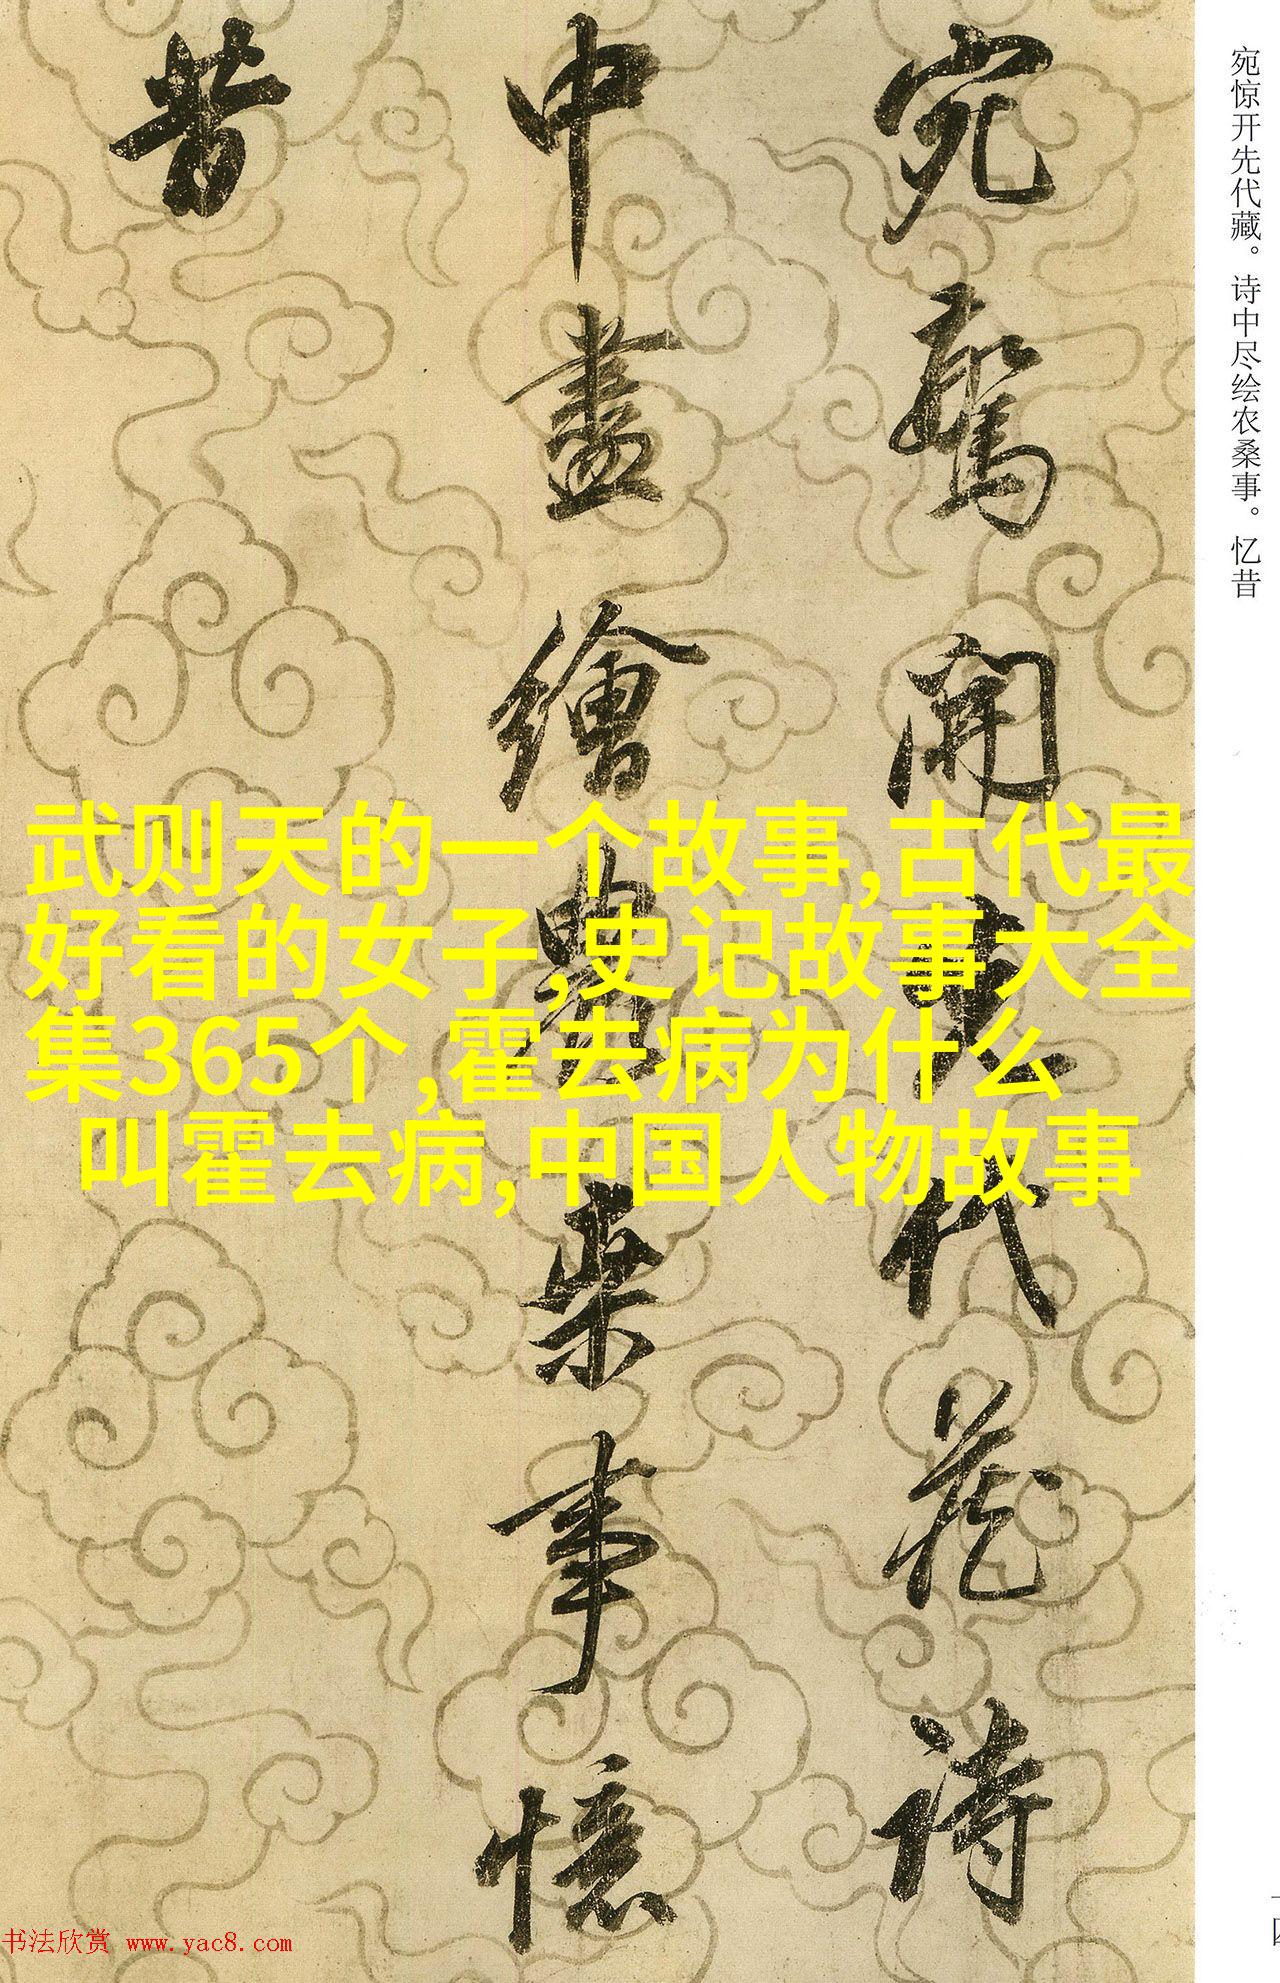 宛驚開先代藏詩
中盡繪農桑事憶
昔
宛惊开先代藏。诗中尽绘农桑事。忆昔
武则天的一个故事,古代最
好看的女子,史记故事大全
集365个,霍去病为什么
叫霍去病,中国人物故事
书法欣赏 www.yac8.com